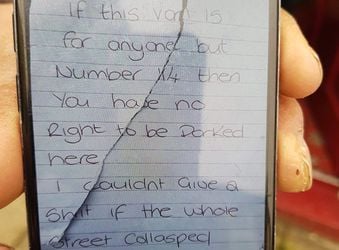 If this van is
for anyone but
Number 14 then
You have no
Right to be Parked
here
I couldnt Give a
Shit if the whole
Street Collapsed